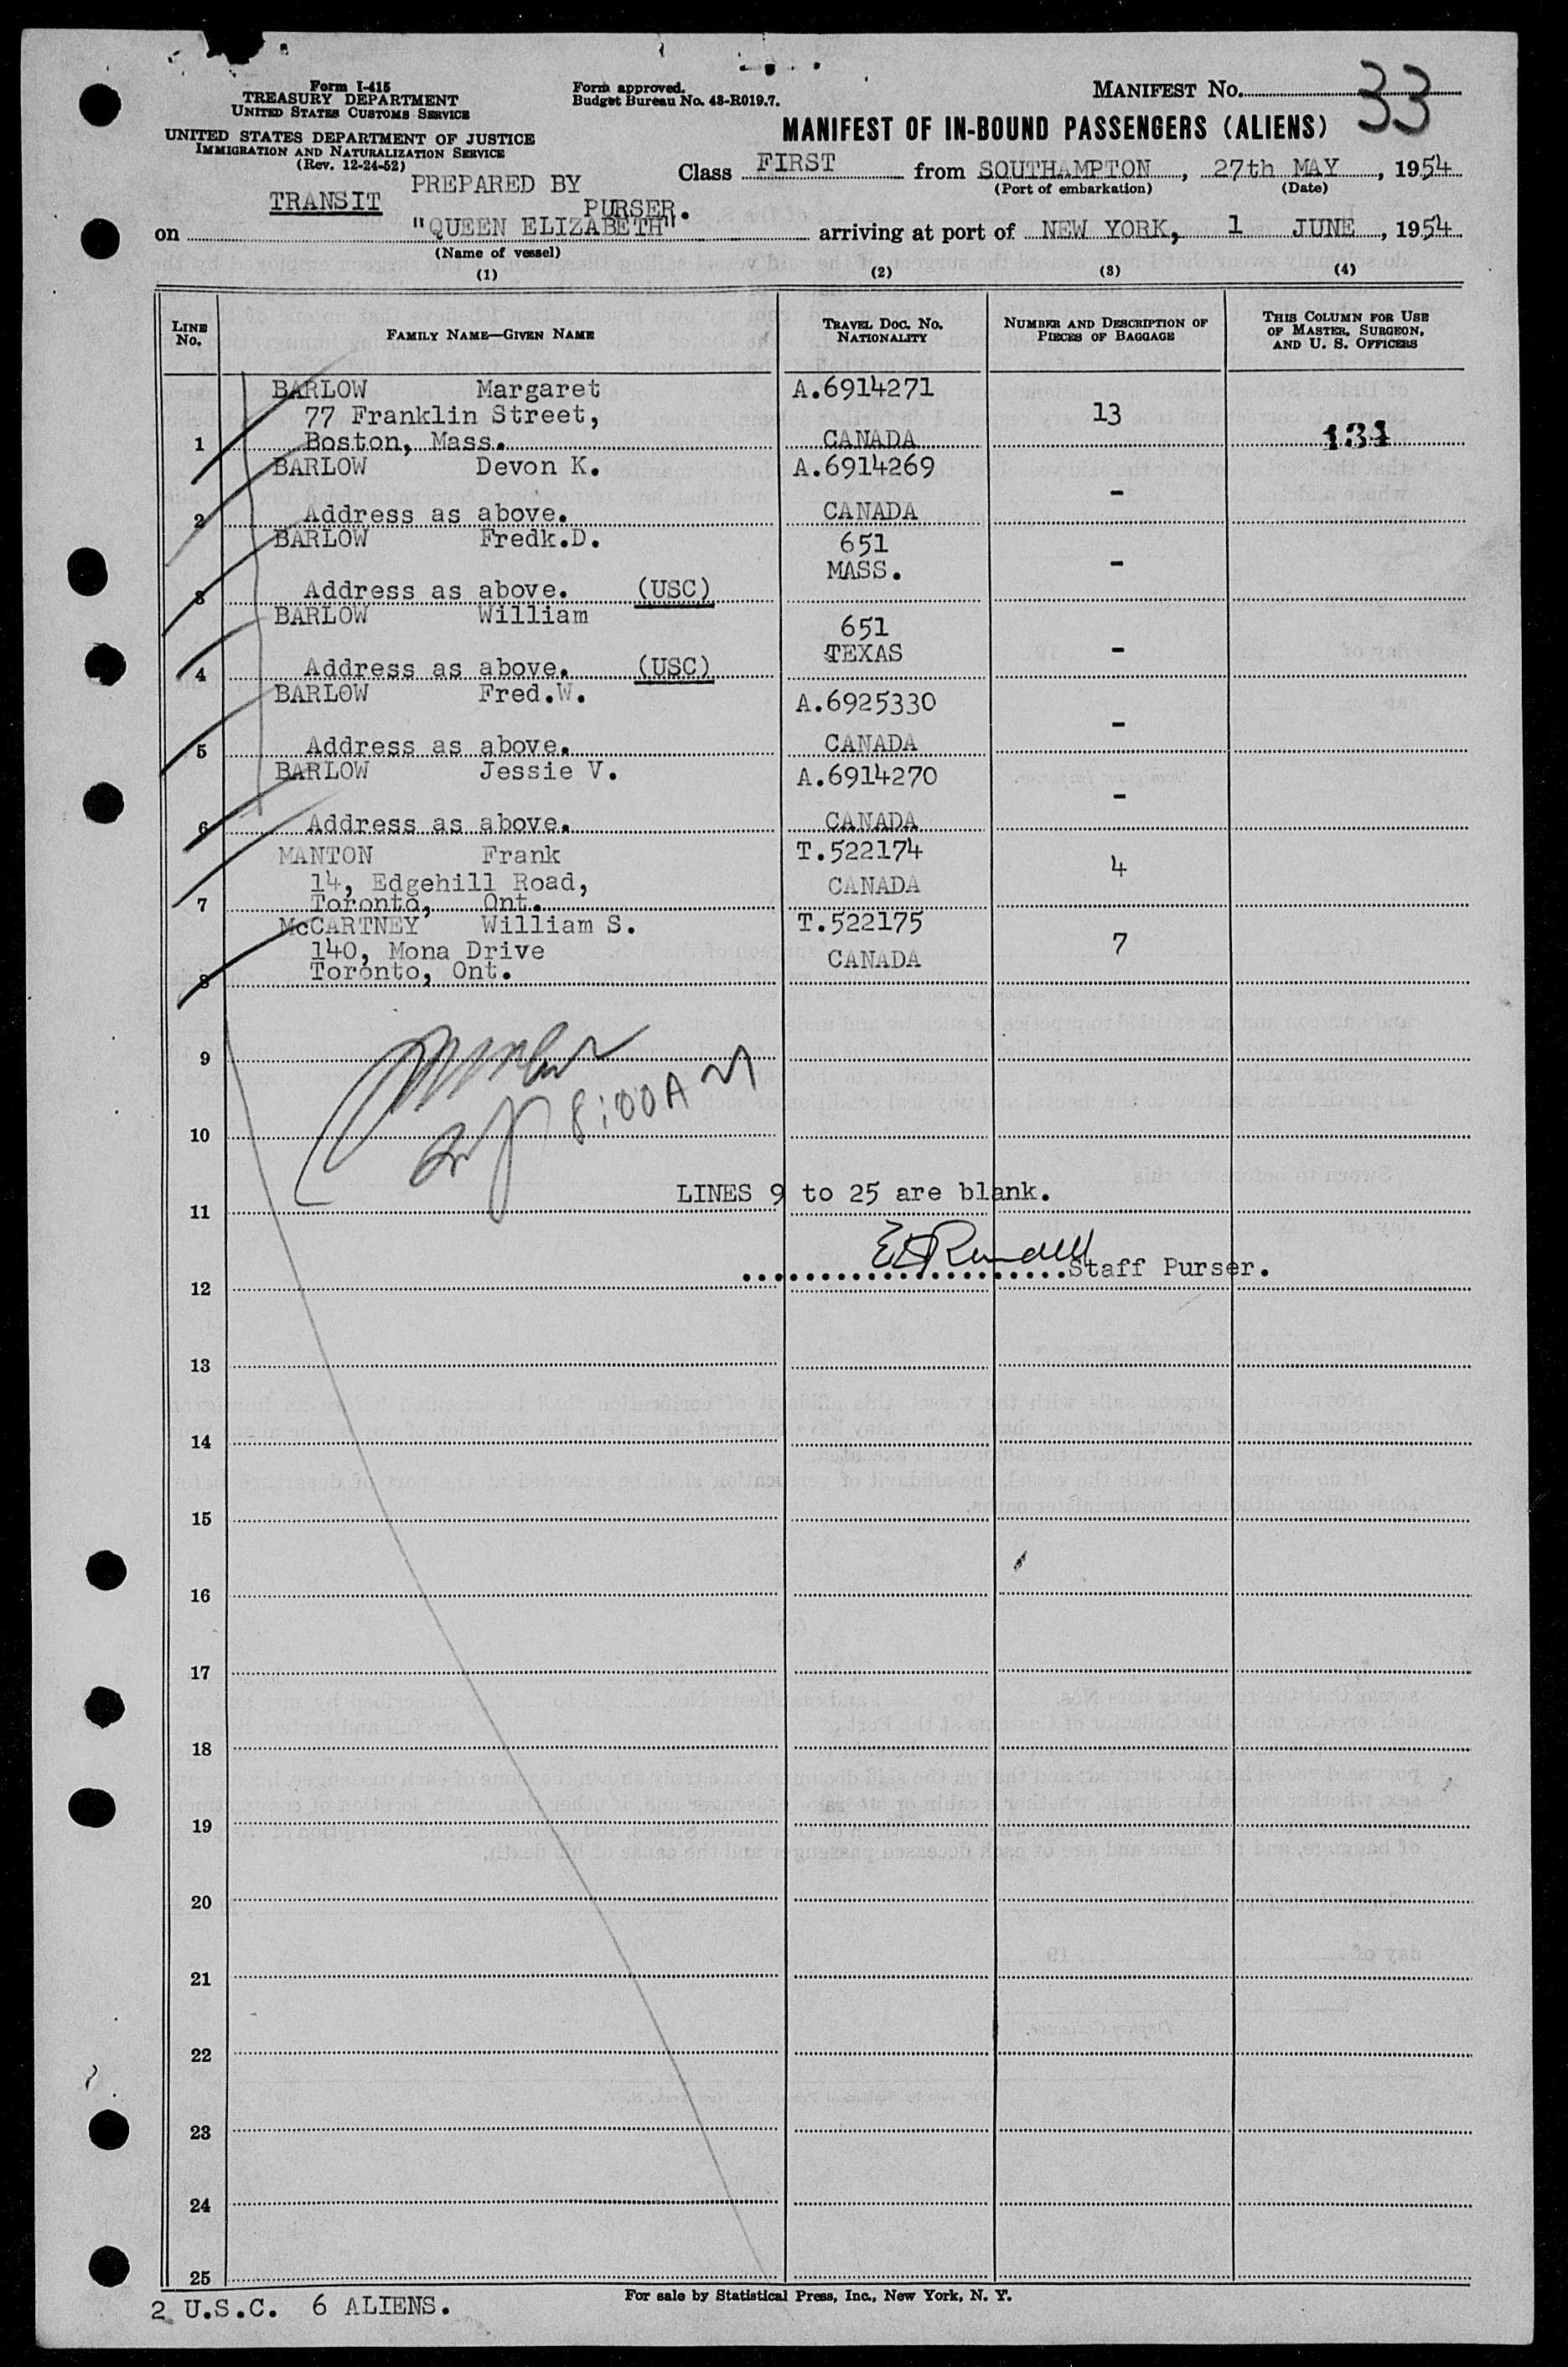 Form I-415
TREASURY DEPARTMENT
UNITED STATES CUSTOMS SERVICE
UNITED STATES DEPARTMENT OF JUSTICE
IMMIGRATION AND NATURALIZATION SERVICE
(Rev. 12-24-52)
Form approved.
Budget Bureau No. 43-R019.7.
MANIFEST No. 33
MANIFEST OF IN-BOUND PASSENGERS (ALIENS)
Class FIRST from SOUTHAMPTON, 27th MAY, 1954
(Port of embarkation) (Date)
TRANSIT PREPARED BY
PURSER.
on "QUEEN ELIZABETH" arriving at port of NEW YORK, 1 JUNE, 1954
(Name of vessel)
(1) (2) (3) (4)
LINE No. FAMILY NAME—GIVEN NAME TRAVEL DOC. No. NATIONALITY NUMBER AND DESCRIPTION OF PIECES OF BAGGAGE THIS COLUMN FOR USE OF MASTER, SURGEON, AND U. S. OFFICERS
BARLOW Margaret A.6914271
77 Franklin Street, 13
1 Boston, Mass. CANADA 131
BARLOW Devon K. A.6914269
-
2 Address as above. CANADA
BARLOW Fredk.D. 651
MASS. -
3 Address as above. (USC)
BARLOW William 651
TEXAS -
4 Address as above. (USC)
BARLOW Fred.W. A.6925330
-
5 Address as above. CANADA
BARLOW Jessie V. A.6914270
-
6 Address as above. CANADA
MANTON Frank T.522174
14, Edgehill Road, CANADA 4
7 Toronto, Ont.
McCARTNEY William S. T.522175
140, Mona Drive CANADA 7
8 Toronto, Ont.
9
8:00 AM
10
LINES 9 to 25 are blank.
11
Staff Purser.
12
13
14
15
16
17
18
19
20
21
22
23
24
25
For sale by Statistical Press, Inc., New York, N. Y.
2 U.S.C. 6 ALIENS.